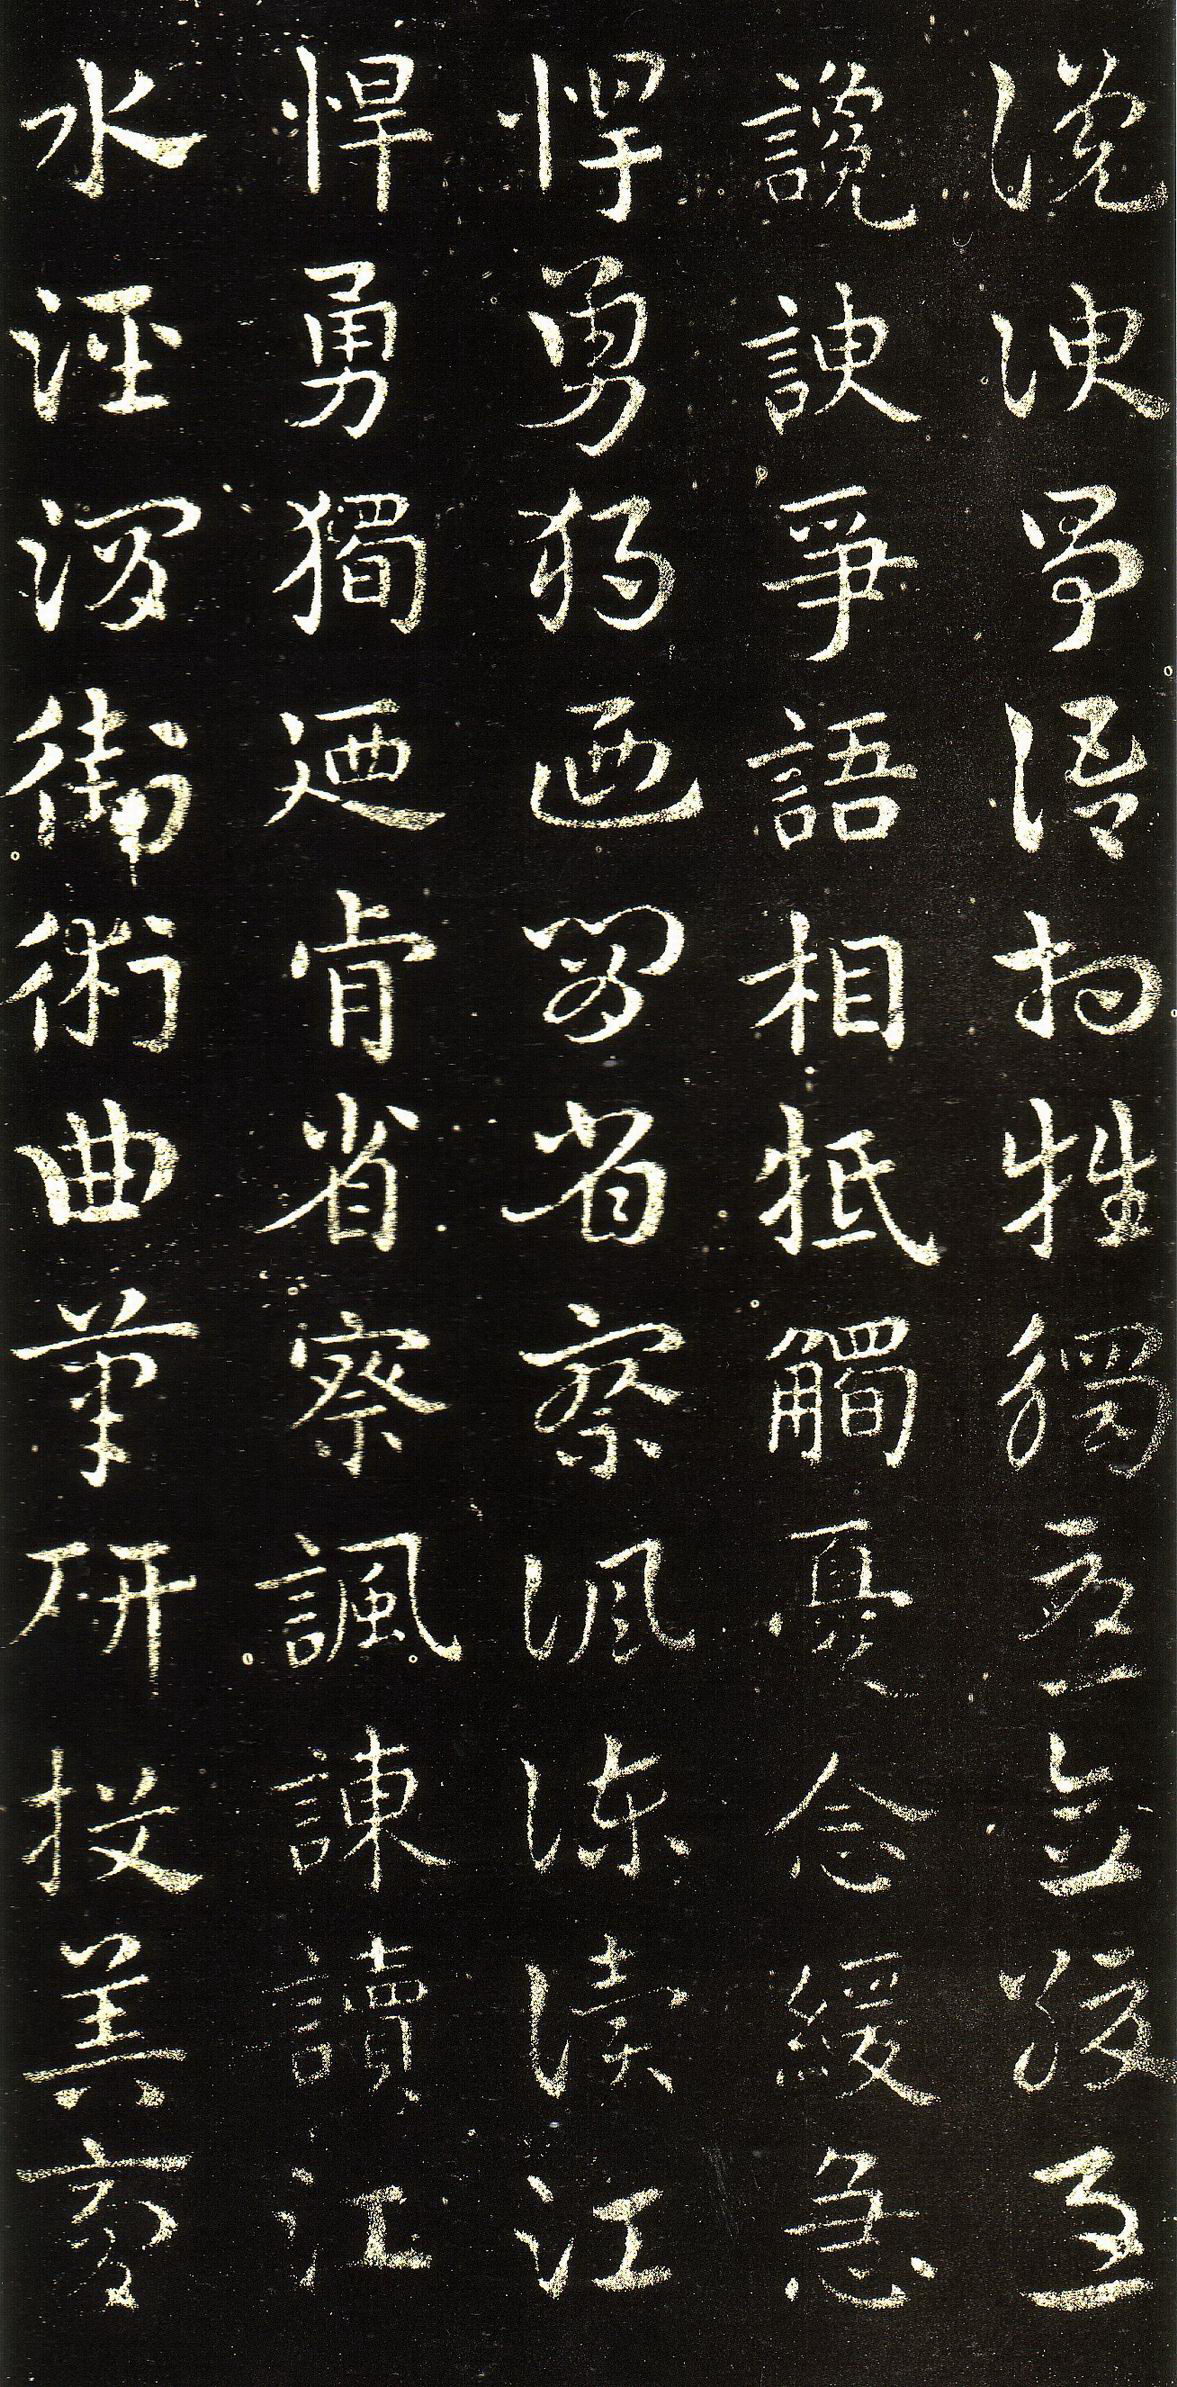 說諛爭語相牴觸憂念緩急
說諛爭語相牴觸憂念緩急
悍勇獨迺肯省察諷諫讀江
悍勇獨迺肯省察諷諫讀江
水涇渭街術曲筆研投筭膏